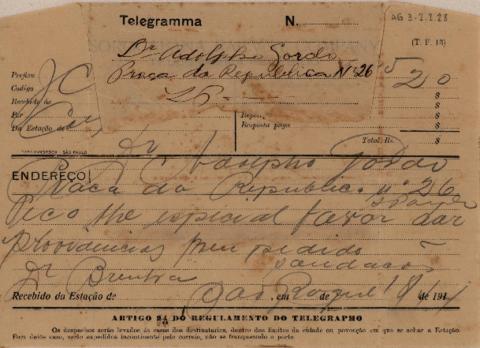 Telegramma N.
AG 3-7.2.28
(T. F. 13)
Dr. Adolpho Gordo
Praça da Republica Nº 26
26
Prefixo JC
520
Codigo
$
Recebido de
$
Por
$
Da Estação de
Resposta paga
$
Total, Rs.
$
Dr Adolpho Gordo
ENDEREÇO
Praça da Republica nº 26
S Paulo
Peço lhe especial favor dar
providencias meu pedido
saudações
Dr
Recebido da Estação de São Roque, em 18 de 191
ARTIGO 54 DO REGULAMENTO DO TELEGRAPHO
Os despachos serão levados ás casas dos destinatarios, dentro dos limites da cidade ou povoação em que se achar a Estação.
Fóra deste caso, serão expedidos incontinente pelo correio, não se franqueando o porte.